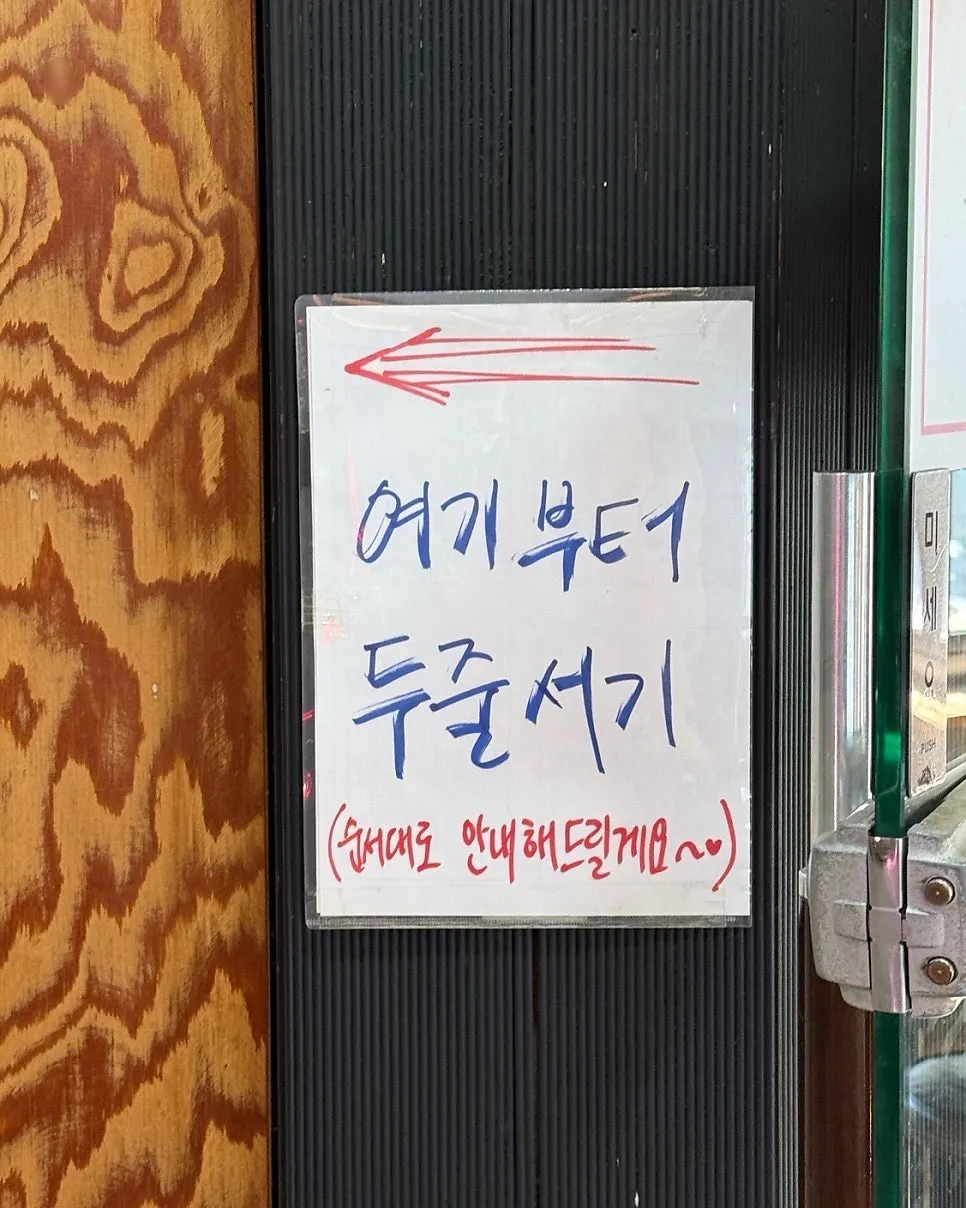 여기부터
두줄서기
(순서대로 안내해드릴게요~♥)
미세요
PUSH